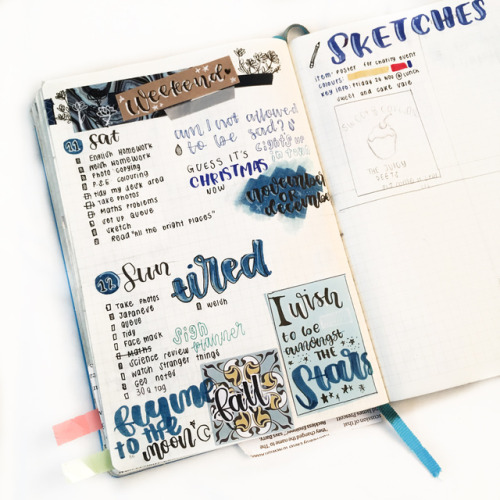 Weekend
11 Sat
English Homework
Maths Homework
Photo copying
P.S.E colouring
tidy my desk area
Take photos
Maths Problems
set up queue
Sketch
Read "All the bright places"
am I not allowed
to be sad?
GUESS IT'S
CHRISTMAS
NOW
november
or
december
12 Sun
tired
Take Photos
Japanese
Queue
Tidy
Face mask
Maths
Science review
Watch Stranger Things
Geo notes
30 Q tag
Welsh
Sign
Banner
fly me
to the
moon
fall
I wish
to be
amongst
THE
Stars
SKETCHES
item: Poster for charity event
colours:
key info: Friday 10 Nov @ Lunch
sweet and cake sale